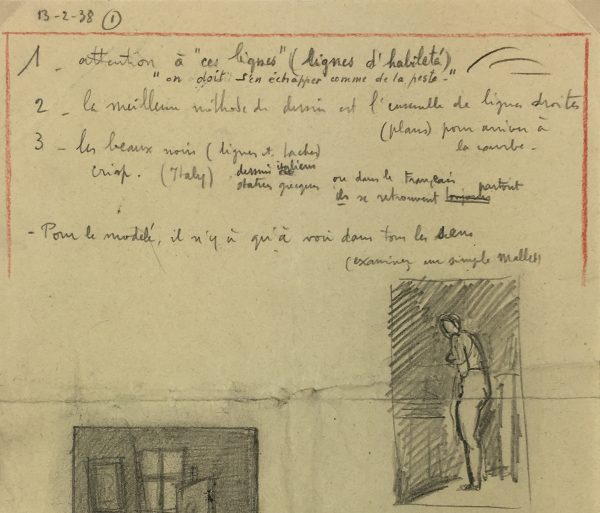 13-2-38 ①
1 - attention à "ces lignes" (lignes d'habileté)
"on doit s'en échapper comme de la peste-"
2 - la meilleure méthode de dessin est l'ensemble de lignes droites
(plans) pour arriver à
la courbe -
3 - les beaux noirs (lignes et taches)
crisp. (Italy) dessins italiens
statues grecques ou dans le français
ils se retrouvent toujours partout
- Pour le modelé, il n'y à qu'à voir dans tous les sens
(examiner un simple mallet)